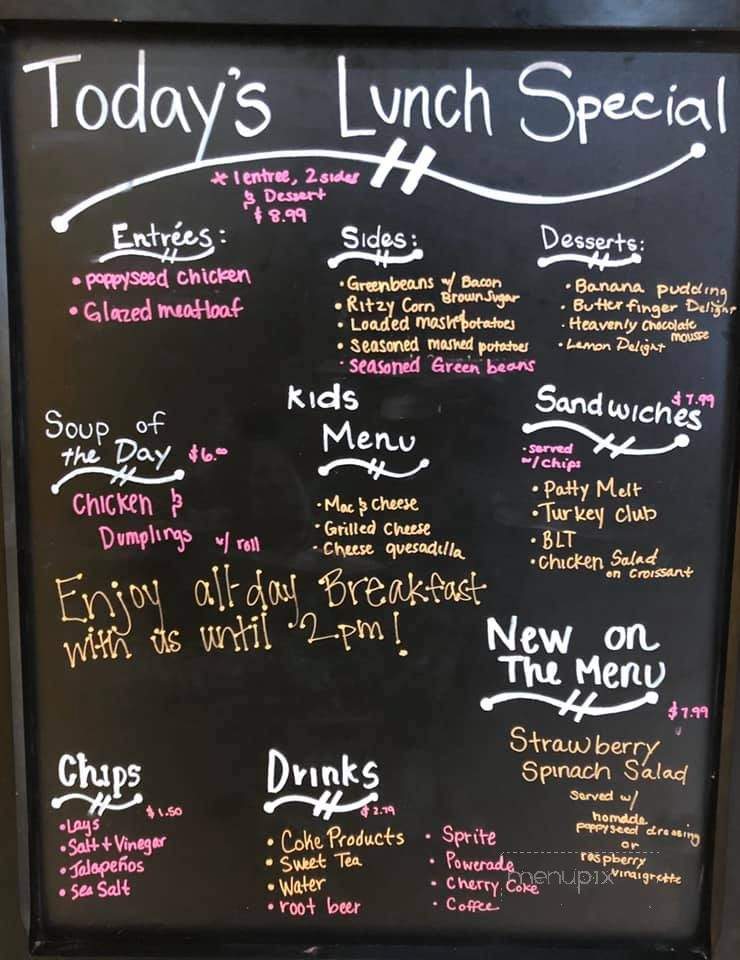 Today's Lunch Special
* 1 entree, 2 sides
& Dessert
$8.99
Entrées:
• poppyseed chicken
• Glazed meatloaf
Sides:
• Greenbeans w/ Bacon
Brown Sugar
• Ritzy Corn
• Loaded mashed potatoes
• Seasoned mashed potatoes
• Seasoned Green beans
Desserts:
• Banana pudding
• Butterfinger Delight
• Heavenly Chocolate
mousse
• Lemon Delight
Soup of
the Day $6.00
Chicken &
Dumplings w/ roll
Kids
Menu
• Mac & Cheese
• Grilled Cheese
• Cheese quesadilla
$7.99
Sandwiches
• served
w/ chips
• Patty Melt
• Turkey Club
• BLT
• Chicken Salad
on Croissant
Enjoy all-day Breakfast
with us until 2pm!
New on
The Menu
$7.99
Strawberry
Spinach Salad
Served w/
homade
poppyseed dressing
or
raspberry
vinaigrette
Chips
$1.50
• Lays
• Salt + Vinegar
• Jalapeños
• Sea Salt
Drinks
$2.79
• Coke Products
• Sweet Tea
• Water
• root beer
• Sprite
• Powerade
• Cherry Coke
• Coffee
menupix